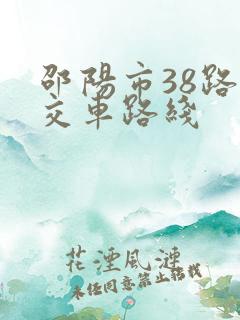 邵陽市38路
交車路綫
花湮風漣
未经同意禁止转载